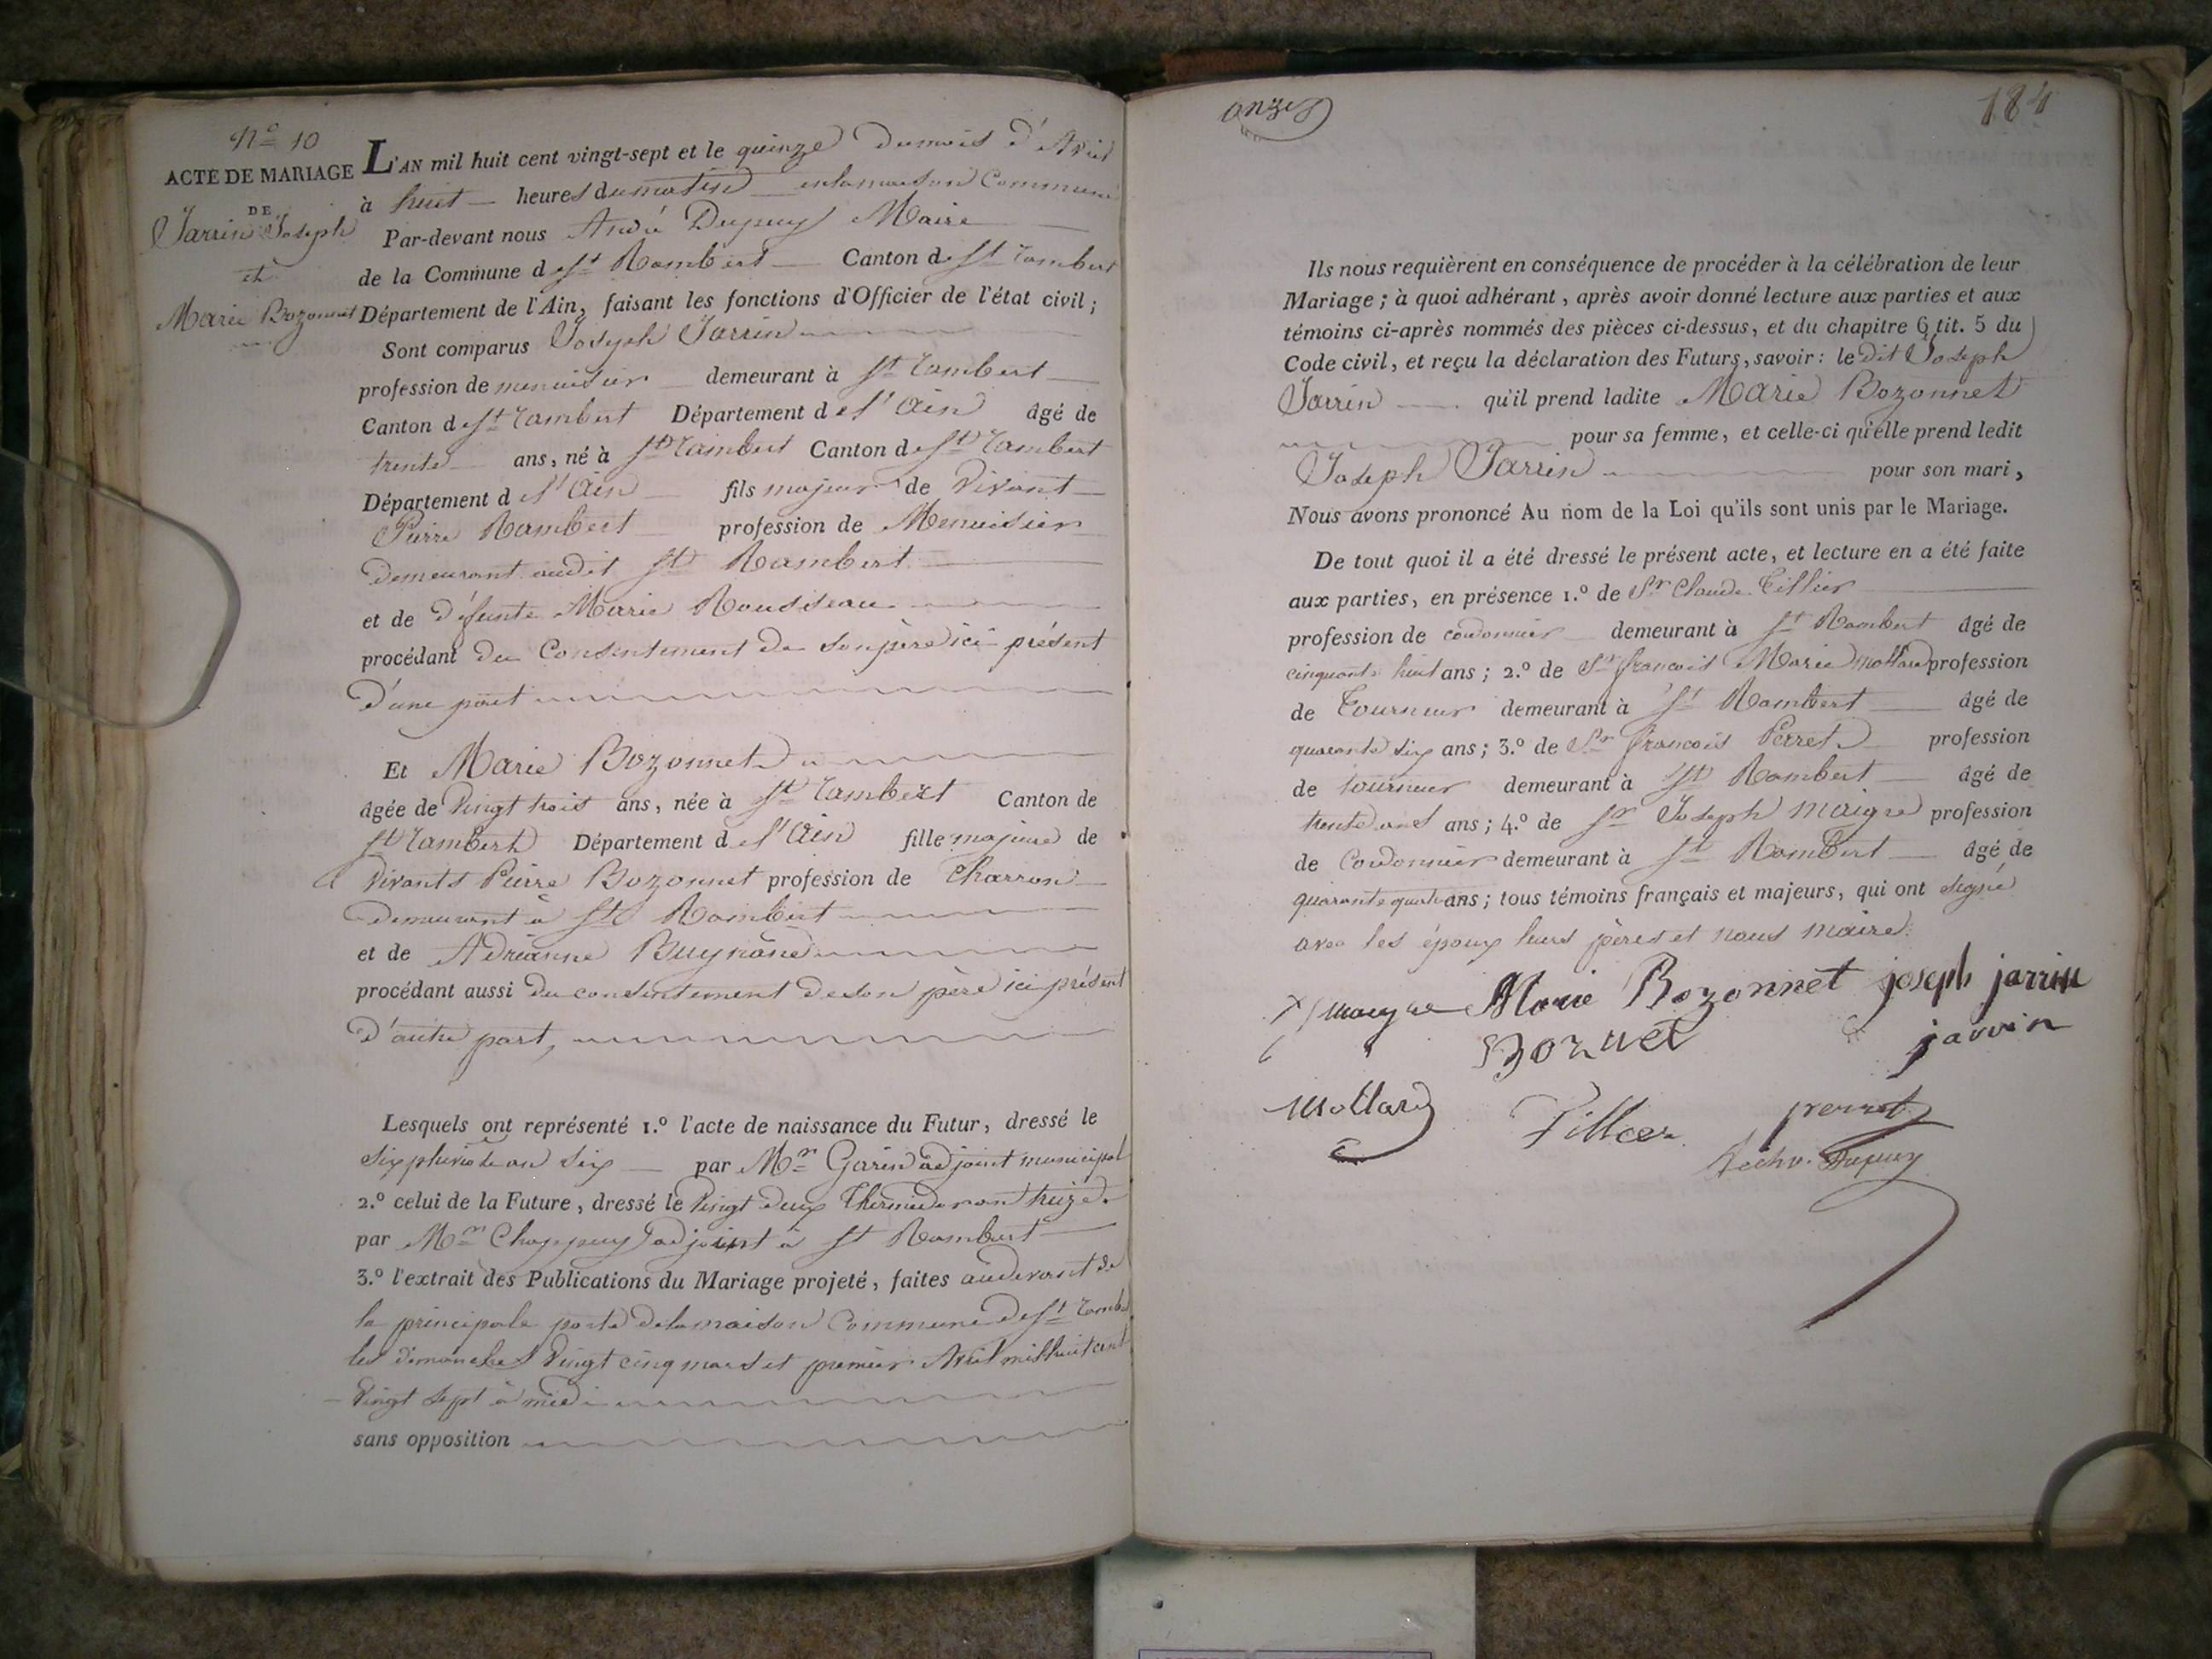 N.o 10
ACTE DE MARIAGE
DE
Jarrin Joseph
et
Marie Bozonnet
L'AN mil huit cent vingt-sept et le quinze du mois d'Avril
à huit heures du matin en la maison Commune
Par-devant nous André Dupuy Maire
de la Commune de St Rambert Canton de St rambert
Département de l'Ain, faisant les fonctions d'Officier de l'état civil;
Sont comparus Joseph Jarrin
profession de menuisier demeurant à St rambert
Canton de St rambert Département de l'Ain âgé de
trente ans, né à St rambert Canton de St rambert
Département de l'Ain fils majeur de vivant
Pierre Rambert profession de Menuisier
demeurant audit St Rambert
et de défunte Marie Rousseau
procédant du Consentement de son père ici présent
d'une part
Et Marie Bozonnet
âgée de vingt trois ans, née à St rambert Canton de
St rambert Département de l'Ain fille majeure de
vivants Pierre Bozonnet profession de Charron
demeurant à St Rambert
et de Adrianne
procédant aussi du consentement de son père ici présent
d'autre part,
Lesquels ont représenté 1.º l'acte de naissance du Futur, dressé le
six pluviose an six par Mr Garin adjoint municipal
2.º celui de la Future, dressé le vingt deux thermidor an treize
par Mr Chappuy adjoint à St Rambert
3.º l'extrait des Publications du Mariage projeté, faites audevant de
la principale porte de la maison Commune de St ramb
les dimanches vingt cinq mars et premier Avril mil huit cent
vingt sept à midi
sans opposition
onze
184
Ils nous requièrent en conséquence de procéder à la célébration de leur
Mariage; à quoi adhérant, après avoir donné lecture aux parties et aux
témoins ci-après nommés des pièces ci-dessus, et du chapitre 6 tit. 5 du
Code civil, et reçu la déclaration des Futurs, savoir: le dit Joseph
Jarrin qu'il prend ladite Marie Bozonnet
pour sa femme, et celle-ci qu'elle prend ledit
Joseph Jarrin pour son mari,
Nous avons prononcé Au nom de la Loi qu'ils sont unis par le Mariage.
De tout quoi il a été dressé le présent acte, et lecture en a été faite
aux parties, en présence 1.º de Sr Claude Tillier
profession de cordonnier demeurant à St Rambert âgé de
cinquante huit ans; 2.º de Sr francois Marie mollard profession
de Tourneur demeurant à St Rambert âgé de
quarante six ans; 3.º de Sr francois Perret profession
de tourneur demeurant à St Rambert âgé de
trente ans; 4.º de Sr Joseph maigre profession
de Cordonnier demeurant à St Rambert âgé de
quarante quatre ans; tous témoins français et majeurs, qui ont signé
avec les époux leurs pères et nous maire.
Marie Bozonnet joseph jarrin
Boznet jarrin
mollard Tillier perret
Dupuy